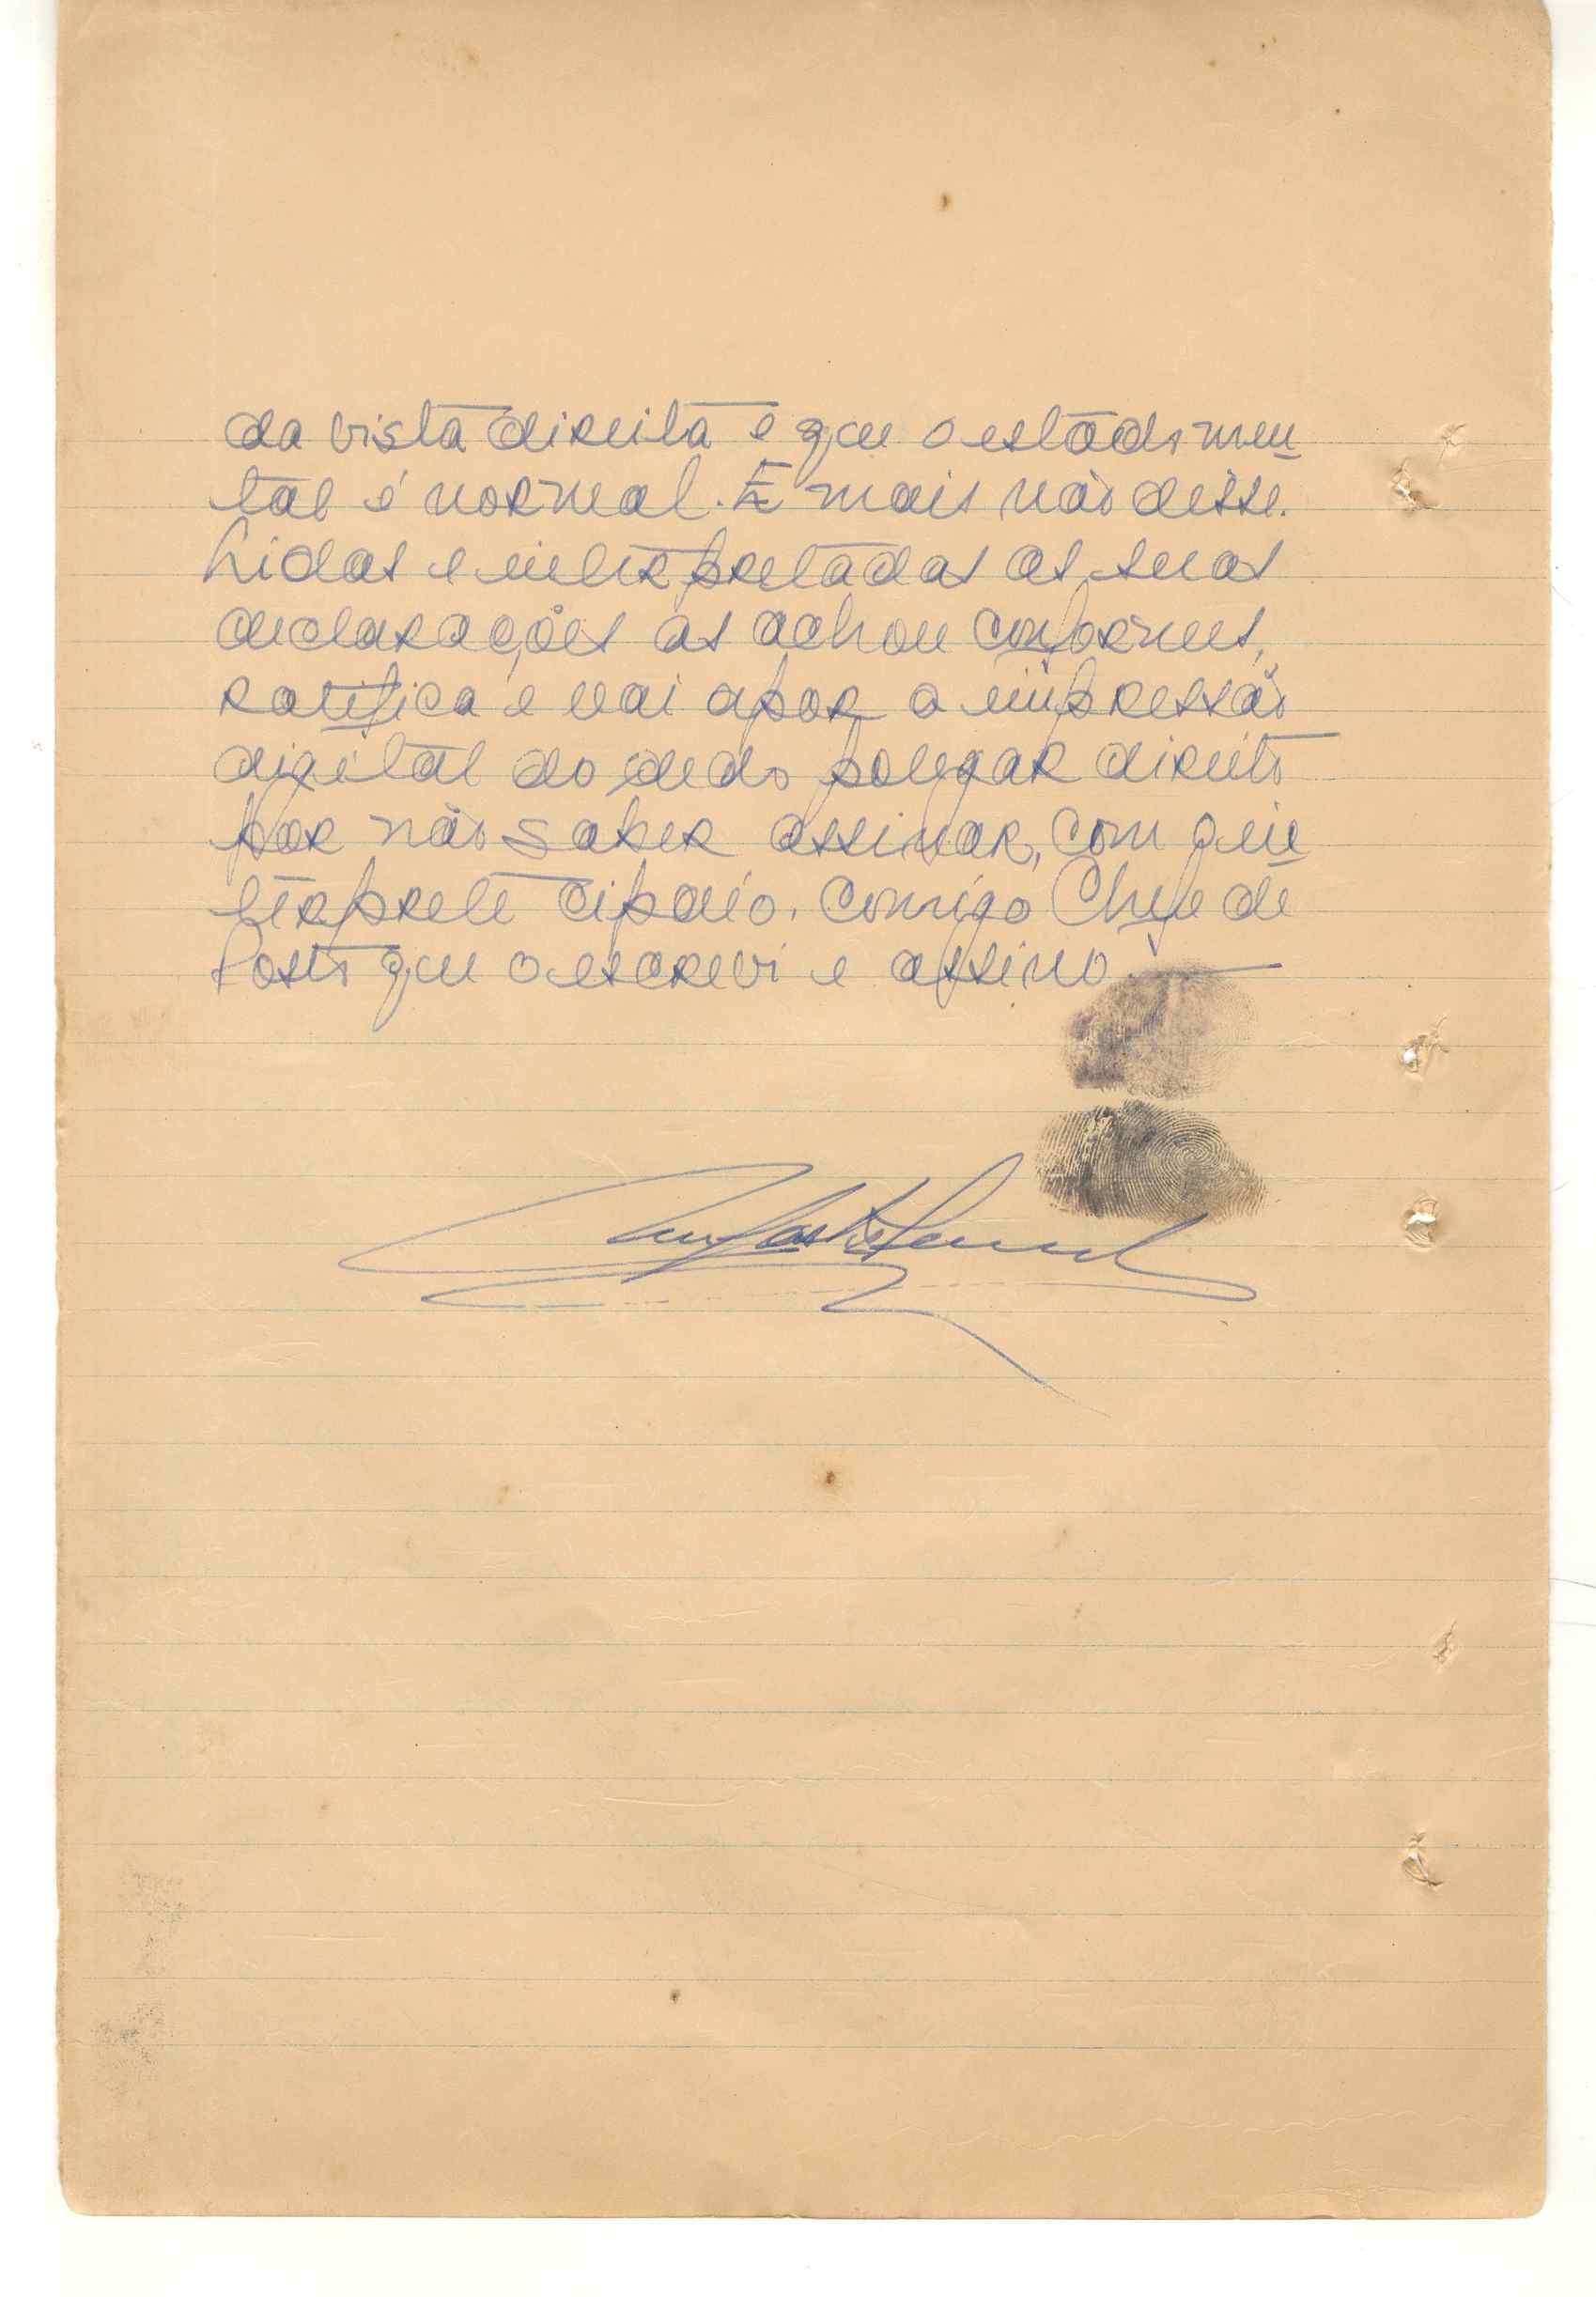 da vista direita e que o estado men
tal é normal. E mais não disse.
Lidas e interpretadas as suas
declarações as achou conformes,
ratifica e vai apor a impressão
digital do dedo polegar direito
por não saber assinar, com o in
térprete cipaio. comigo Chefe de
Posto que o escrevi e assino.